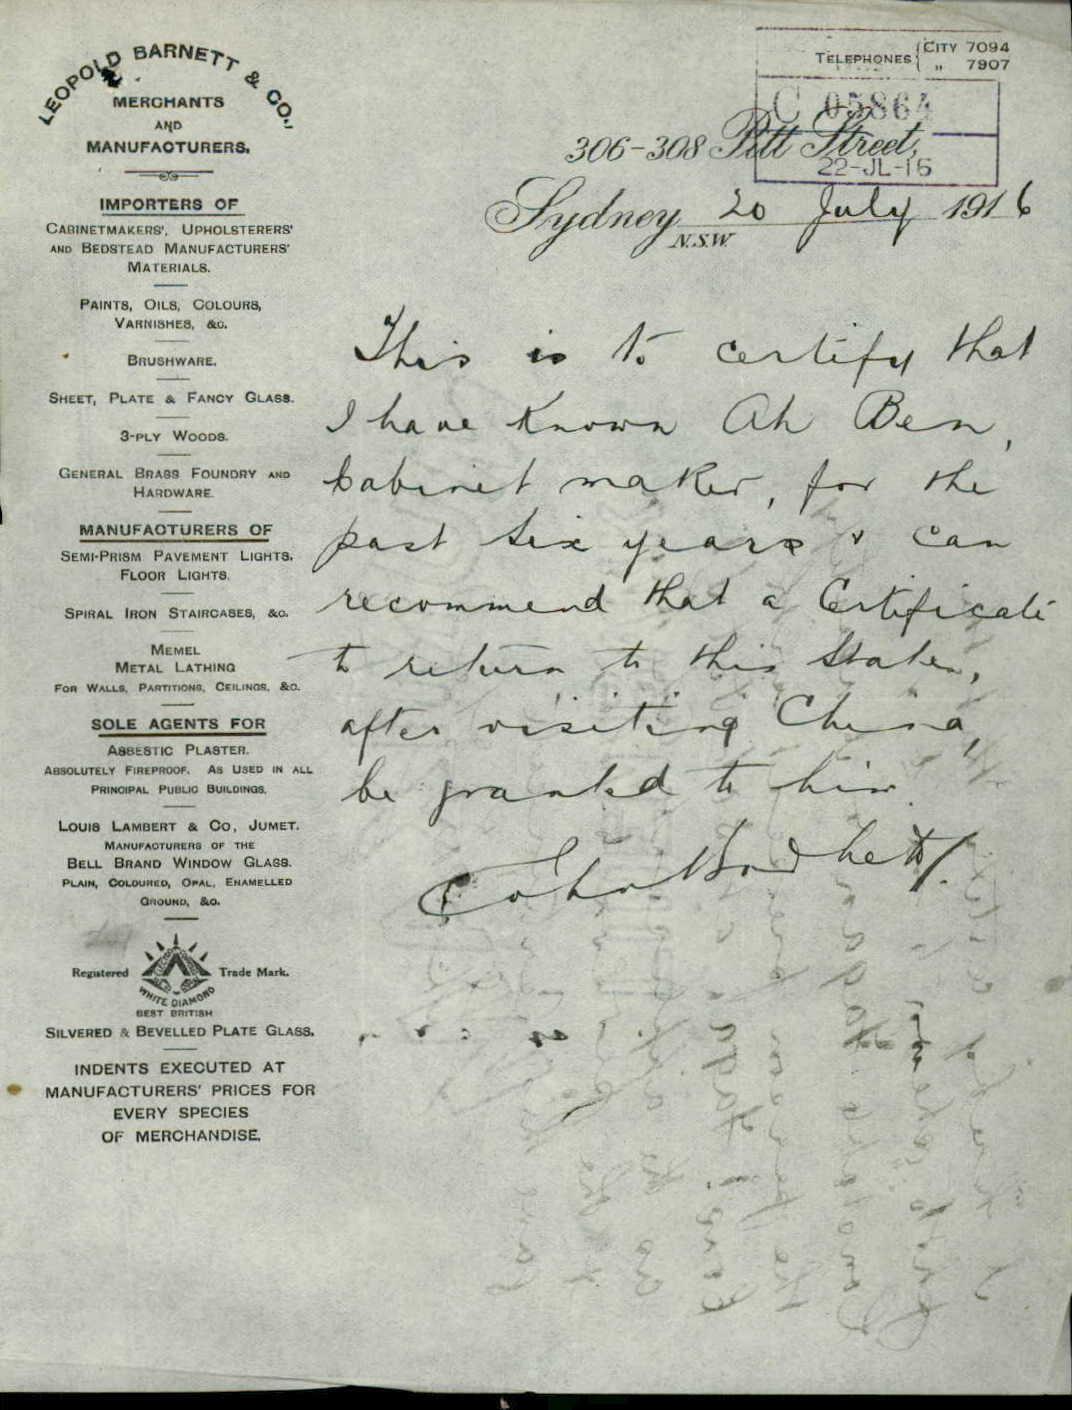 LEOPOLD BARNETT & CO.,
MERCHANTS
AND
MANUFACTURERS.
IMPORTERS OF
CABINETMAKERS', UPHOLSTERERS'
AND BEDSTEAD MANUFACTURERS'
MATERIALS.
PAINTS, OILS, COLOURS,
VARNISHES, &C.
BRUSHWARE.
SHEET, PLATE & FANCY GLASS.
3-PLY WOODS.
GENERAL BRASS FOUNDRY AND
HARDWARE.
MANUFACTURERS OF
SEMI-PRISM PAVEMENT LIGHTS.
FLOOR LIGHTS.
SPIRAL IRON STAIRCASES, &C.
MEMEL
METAL LATHING
FOR WALLS, PARTITIONS, CEILINGS, &C.
SOLE AGENTS FOR
ASBESTIC PLASTER.
ABSOLUTELY FIREPROOF. AS USED IN ALL
PRINCIPAL PUBLIC BUILDINGS.
LOUIS LAMBERT & CO, JUMET.
MANUFACTURERS OF THE
BELL BRAND WINDOW GLASS.
PLAIN, COLOURED, OPAL, ENAMELLED
GROUND, &C.
Registered Trade Mark.
WHITE DIAMOND
BEST BRITISH
SILVERED & BEVELLED PLATE GLASS.
INDENTS EXECUTED AT
MANUFACTURERS' PRICES FOR
EVERY SPECIES
OF MERCHANDISE.
TELEPHONES { CITY 7094
" 7907
C 05864
306-308 Pitt Street,
22-JL-16
Sydney 20 July 1916
N.S.W.
This is to certify that
I have known Ah Ben,
Cabinet maker, for the
past six years & can
recommend that a Certificate
to return to this State,
after visiting China,
be granted to him